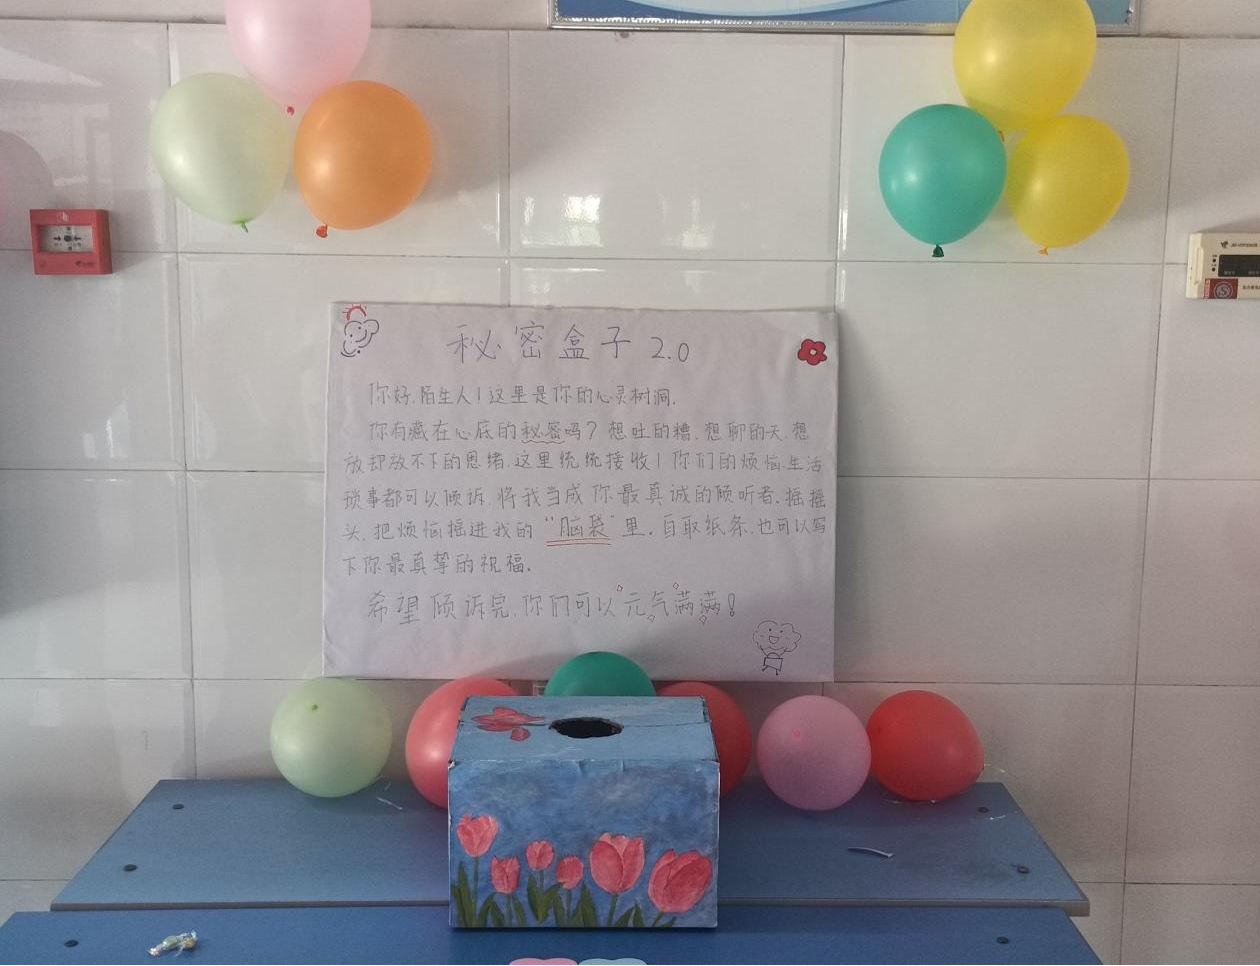 秘密盒子 2.0
你好,陌生人!这里是你的心灵树洞.
你有藏在心底的秘密吗?想吐的槽.想聊的天.想
放却放不下的思绪.这里统统接收!你们的烦恼.生活
琐事都可以倾诉.将我当成你最真诚的倾听者.摇摇
头.把烦恼摇进我的“脑袋”里。自取纸条.也可以写
下你最真挚的祝福.
希望倾诉完.你们可以元气满满!